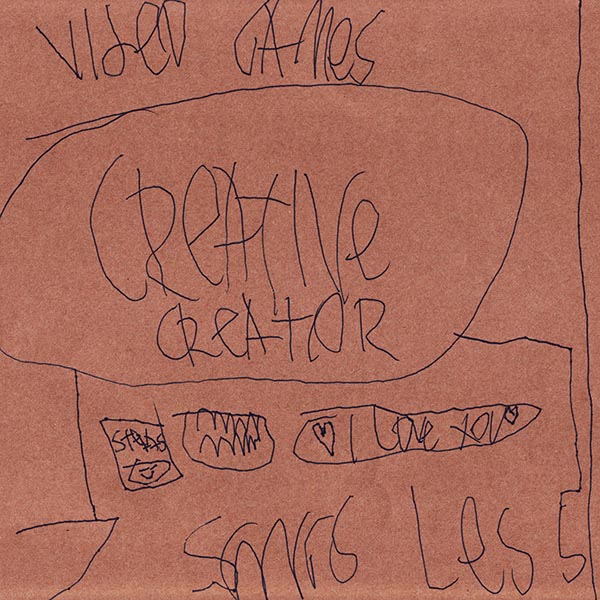 VIdeO GAMes
CReATIVe
CReATOR
I Love YOU
SONGS LeSS